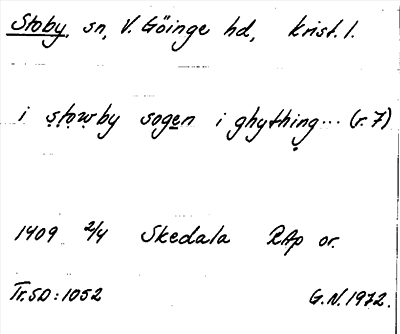 Stoby, sn, V. Göinge hd, krist. l.
i ṣṭọẉby sogen i ghything... (r. 7)
1409 2/4 Skedala RAp or.
Tr. SD: 1052 G.N. 1972.